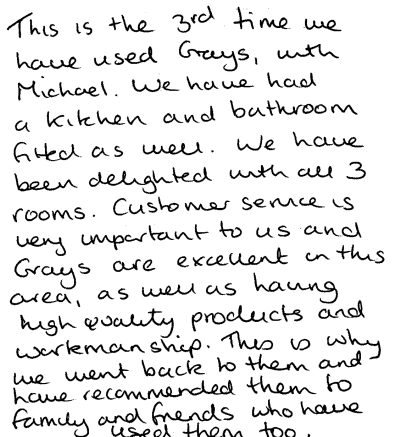 This is the 3rd time we
have used Grays, with
Michael. We have had
a kitchen and bathroom
fitted as well. We have
been delighted with all 3
rooms. Customer service is
very important to us and
Grays are excellent in this
area, as well as having
high quality products and
workmanship. This is why
we went back to them and
have recommended them to
family and friends who have
used them too.